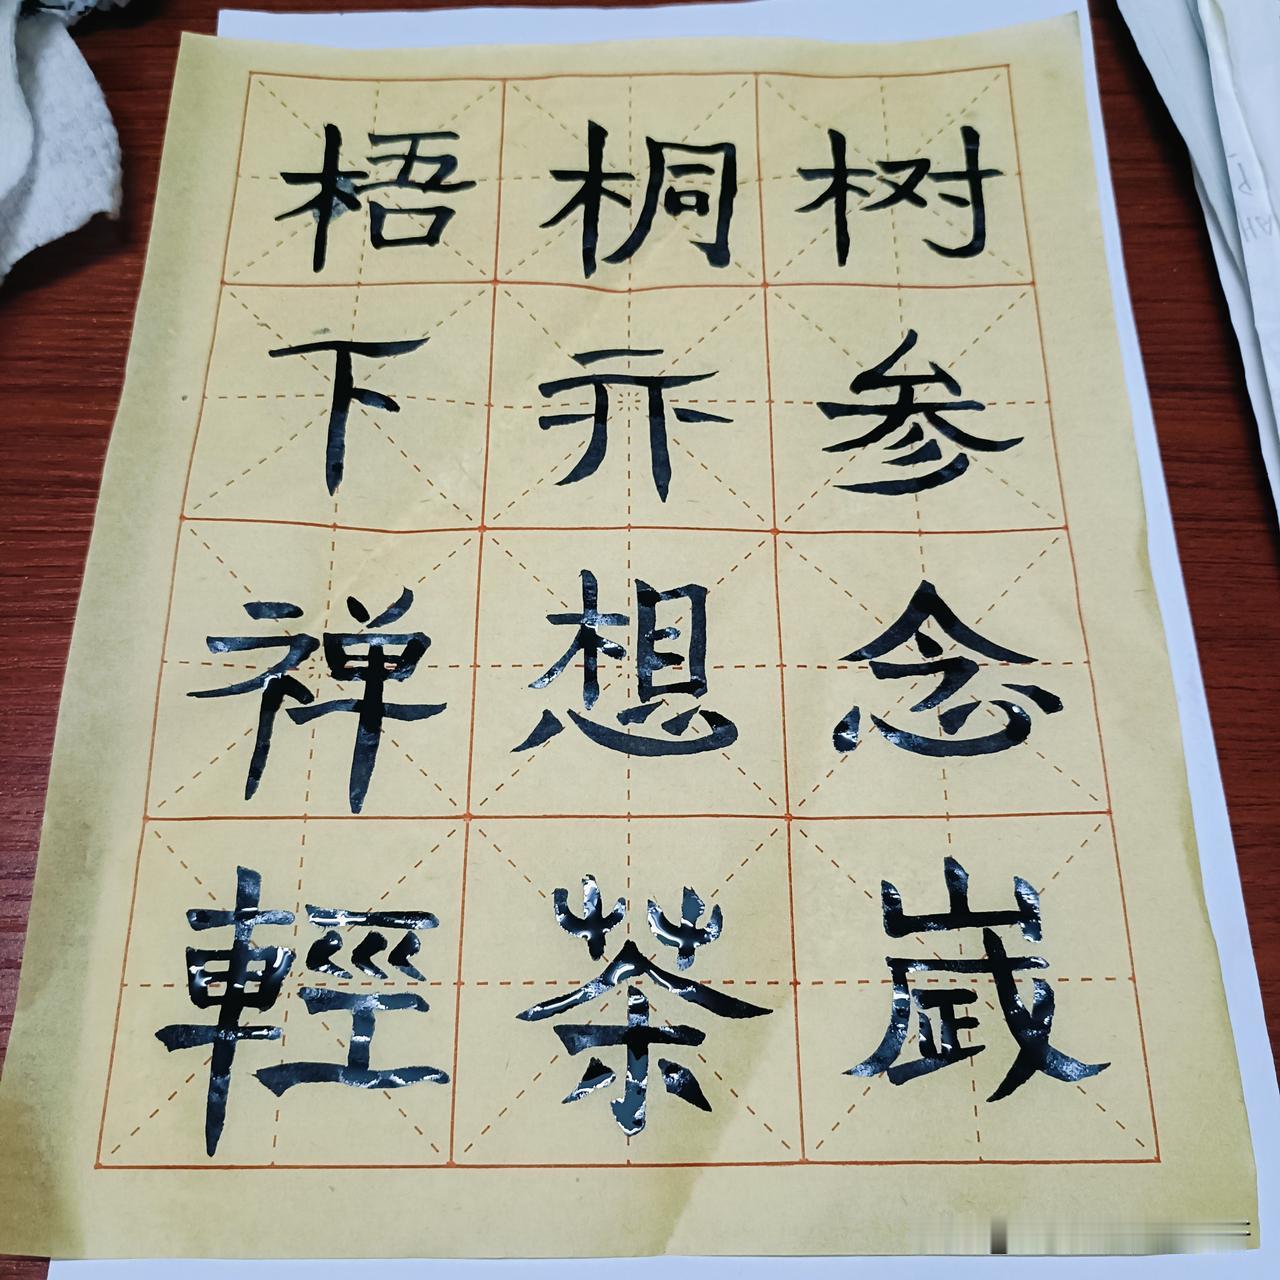 梧桐树
下亦参
禅想念
輕茶嵗